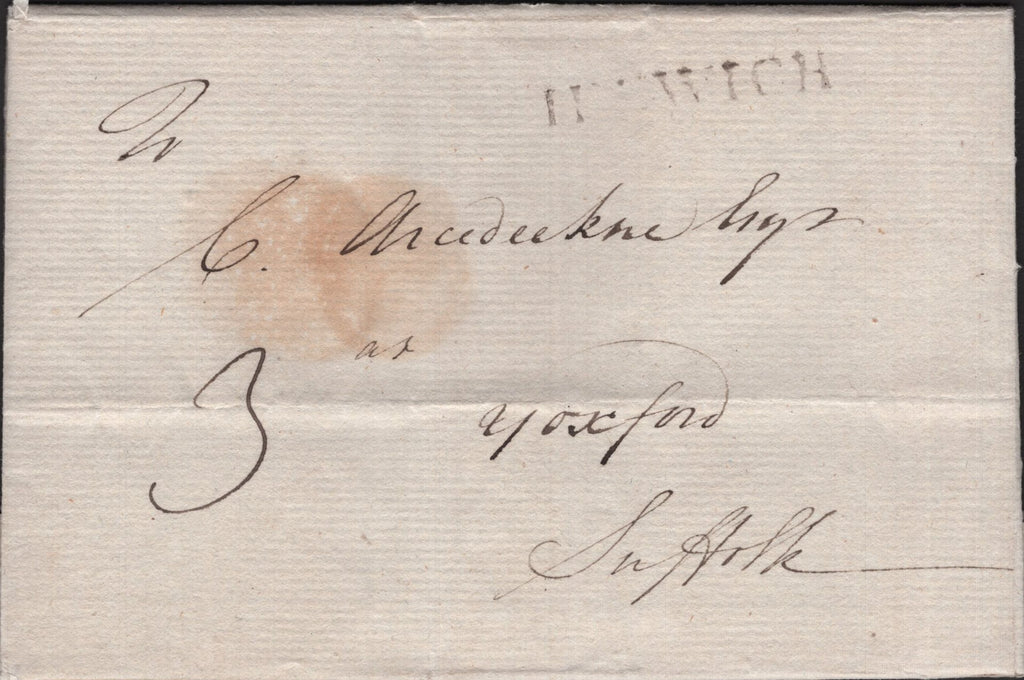 To
C. Arcedeekne Esqr
at
3
Yoxford
Suffolk